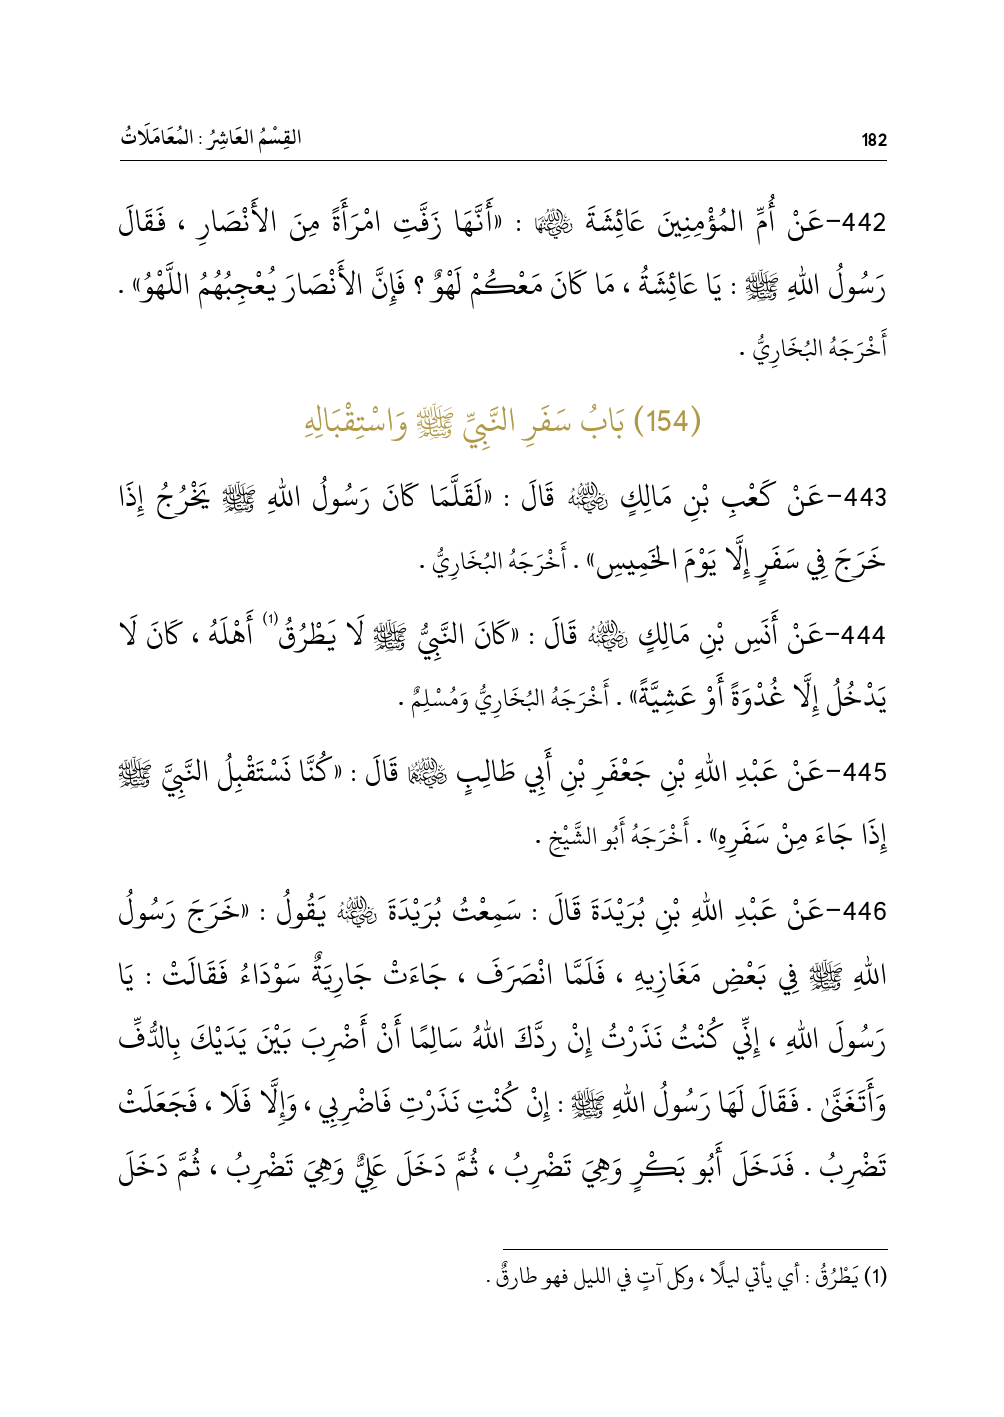 182
القِسْمُ العَاشِرُ : المُعَامَلَاتُ
442-عَنْ أُمِّ المُؤْمِنِينَ عَائِشَةَ رَضِيَ اللهُ عَنْهَا : «أَنَّهَا زَفَّتِ امْرَأَةً مِنَ الأَنْصَارِ ، فَقَالَ
رَسُولُ اللهِ ﷺ : يَا عَائِشَةُ ، مَا كَانَ مَعْكُمْ لَهْوٌ ؟ فَإِنَّ الأَنْصَارَ يُعْجِبُهُمُ اللَّهْوُ» .
أَخْرَجَهُ البُخَارِيُّ .
(154) بَابُ سَفَرِ النَّبِيِّ ﷺ وَاسْتِقْبَالِهِ
443-عَنْ كَعْبِ بْنِ مَالِكٍ رَضِيَ اللهُ عَنْهُ قَالَ : «لَقَلَّمَا كَانَ رَسُولُ اللهِ ﷺ يَخْرُجُ إِذَا
خَرَجَ فِي سَفَرٍ إِلَّا يَوْمَ الخَمِيسِ» . أَخْرَجَهُ البُخَارِيُّ .
444-عَنْ أَنَسِ بْنِ مَالِكٍ رَضِيَ اللهُ عَنْهُ قَالَ : «كَانَ النَّبِيُّ ﷺ لَا يَطْرُقُ(1) أَهْلَهُ ، كَانَ لَا
يَدْخُلُ إِلَّا غُدْوَةً أَوْ عَشِيَّةً» . أَخْرَجَهُ البُخَارِيُّ وَمُسْلِمٌ .
445-عَنْ عَبْدِ اللهِ بْنِ جَعْفَرِ بْنِ أَبِي طَالِبٍ رَضِيَ اللهُ عَنْهُمَا قَالَ : «كُنَّا نَسْتَقْبِلُ النَّبِيَّ ﷺ
إِذَا جَاءَ مِنْ سَفَرِهِ» . أَخْرَجَهُ أَبُو الشَّيْخِ .
446-عَنْ عَبْدِ اللهِ بْنِ بُرَيْدَةَ قَالَ : سَمِعْتُ بُرَيْدَةَ رَضِيَ اللهُ عَنْهُ يَقُولُ : «خَرَجَ رَسُولُ
اللهِ ﷺ فِي بَعْضِ مَغَازِيهِ ، فَلَمَّا انْصَرَفَ ، جَاءَتْ جَارِيَةٌ سَوْدَاءُ فَقَالَتْ : يَا
رَسُولَ اللهِ ، إِنِّي كُنْتُ نَذَرْتُ إِنْ رَدَّكَ اللهُ سَالِمًا أَنْ أَضْرِبَ بَيْنَ يَدَيْكَ بِالدُّفِّ
وَأَتَغَنَّىٰ . فَقَالَ لَهَا رَسُولُ اللهِ ﷺ : إِنْ كُنْتِ نَذَرْتِ فَاضْرِبِي ، وَإِلَّا فَلَا ، فَجَعَلَتْ
تَضْرِبُ . فَدَخَلَ أَبُو بَكْرٍ وَهِيَ تَضْرِبُ ، ثُمَّ دَخَلَ عَلِيٌّ وَهِيَ تَضْرِبُ ، ثُمَّ دَخَلَ
(1) يَطْرُقُ : أي يأتي ليلًا ، وكل آتٍ في الليل فهو طارقٌ .